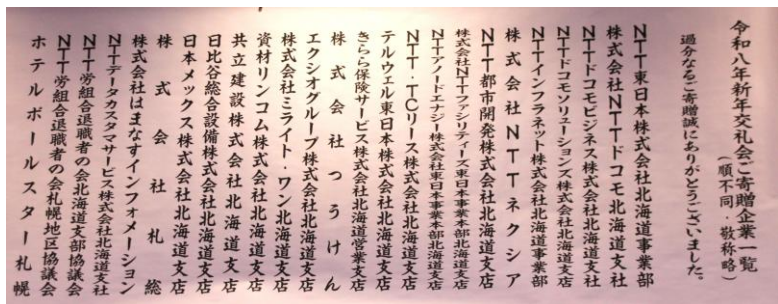 令和八年新年交礼会ご寄贈企業一覧
（順不同・敬称略）
過分なるご寄贈誠にありがとうございました。
NTT東日本株式会社北海道事業部
株式会社NTTドコモ北海道支社
NTTドコモビジネス株式会社北海道支社
NTTドコモソリューションズ株式会社北海道支社
NTTインフラネット株式会社北海道事業部
株式会社NTTネクシア
NTT都市開発株式会社北海道支店
株式会社NTTファシリティーズ東日本事業本部北海道支店
NTTアノードエナジー株式会社東日本事業本部北海道支店
NTT・TCリース株式会社北海道支店
テルウェル東日本株式会社北海道支店
きらら保険サービス株式会社北海道営業支店
株式会社つうけん
エクシオグループ株式会社北海道支店
株式会社ミライト・ワン北海道支店
資材リンコム株式会社北海道支店
共立建設株式会社北海道支店
日比谷総合設備株式会社北海道支店
日本メックス株式会社北海道支店
株式会社札総
株式会社はまなすインフォメーション
NTTデータカスタマサービス株式会社北海道支社
NTT労組合退職者の会北海道支部協議会
NTT労組合退職者の会札幌地区協議会
ホテルポールスター札幌